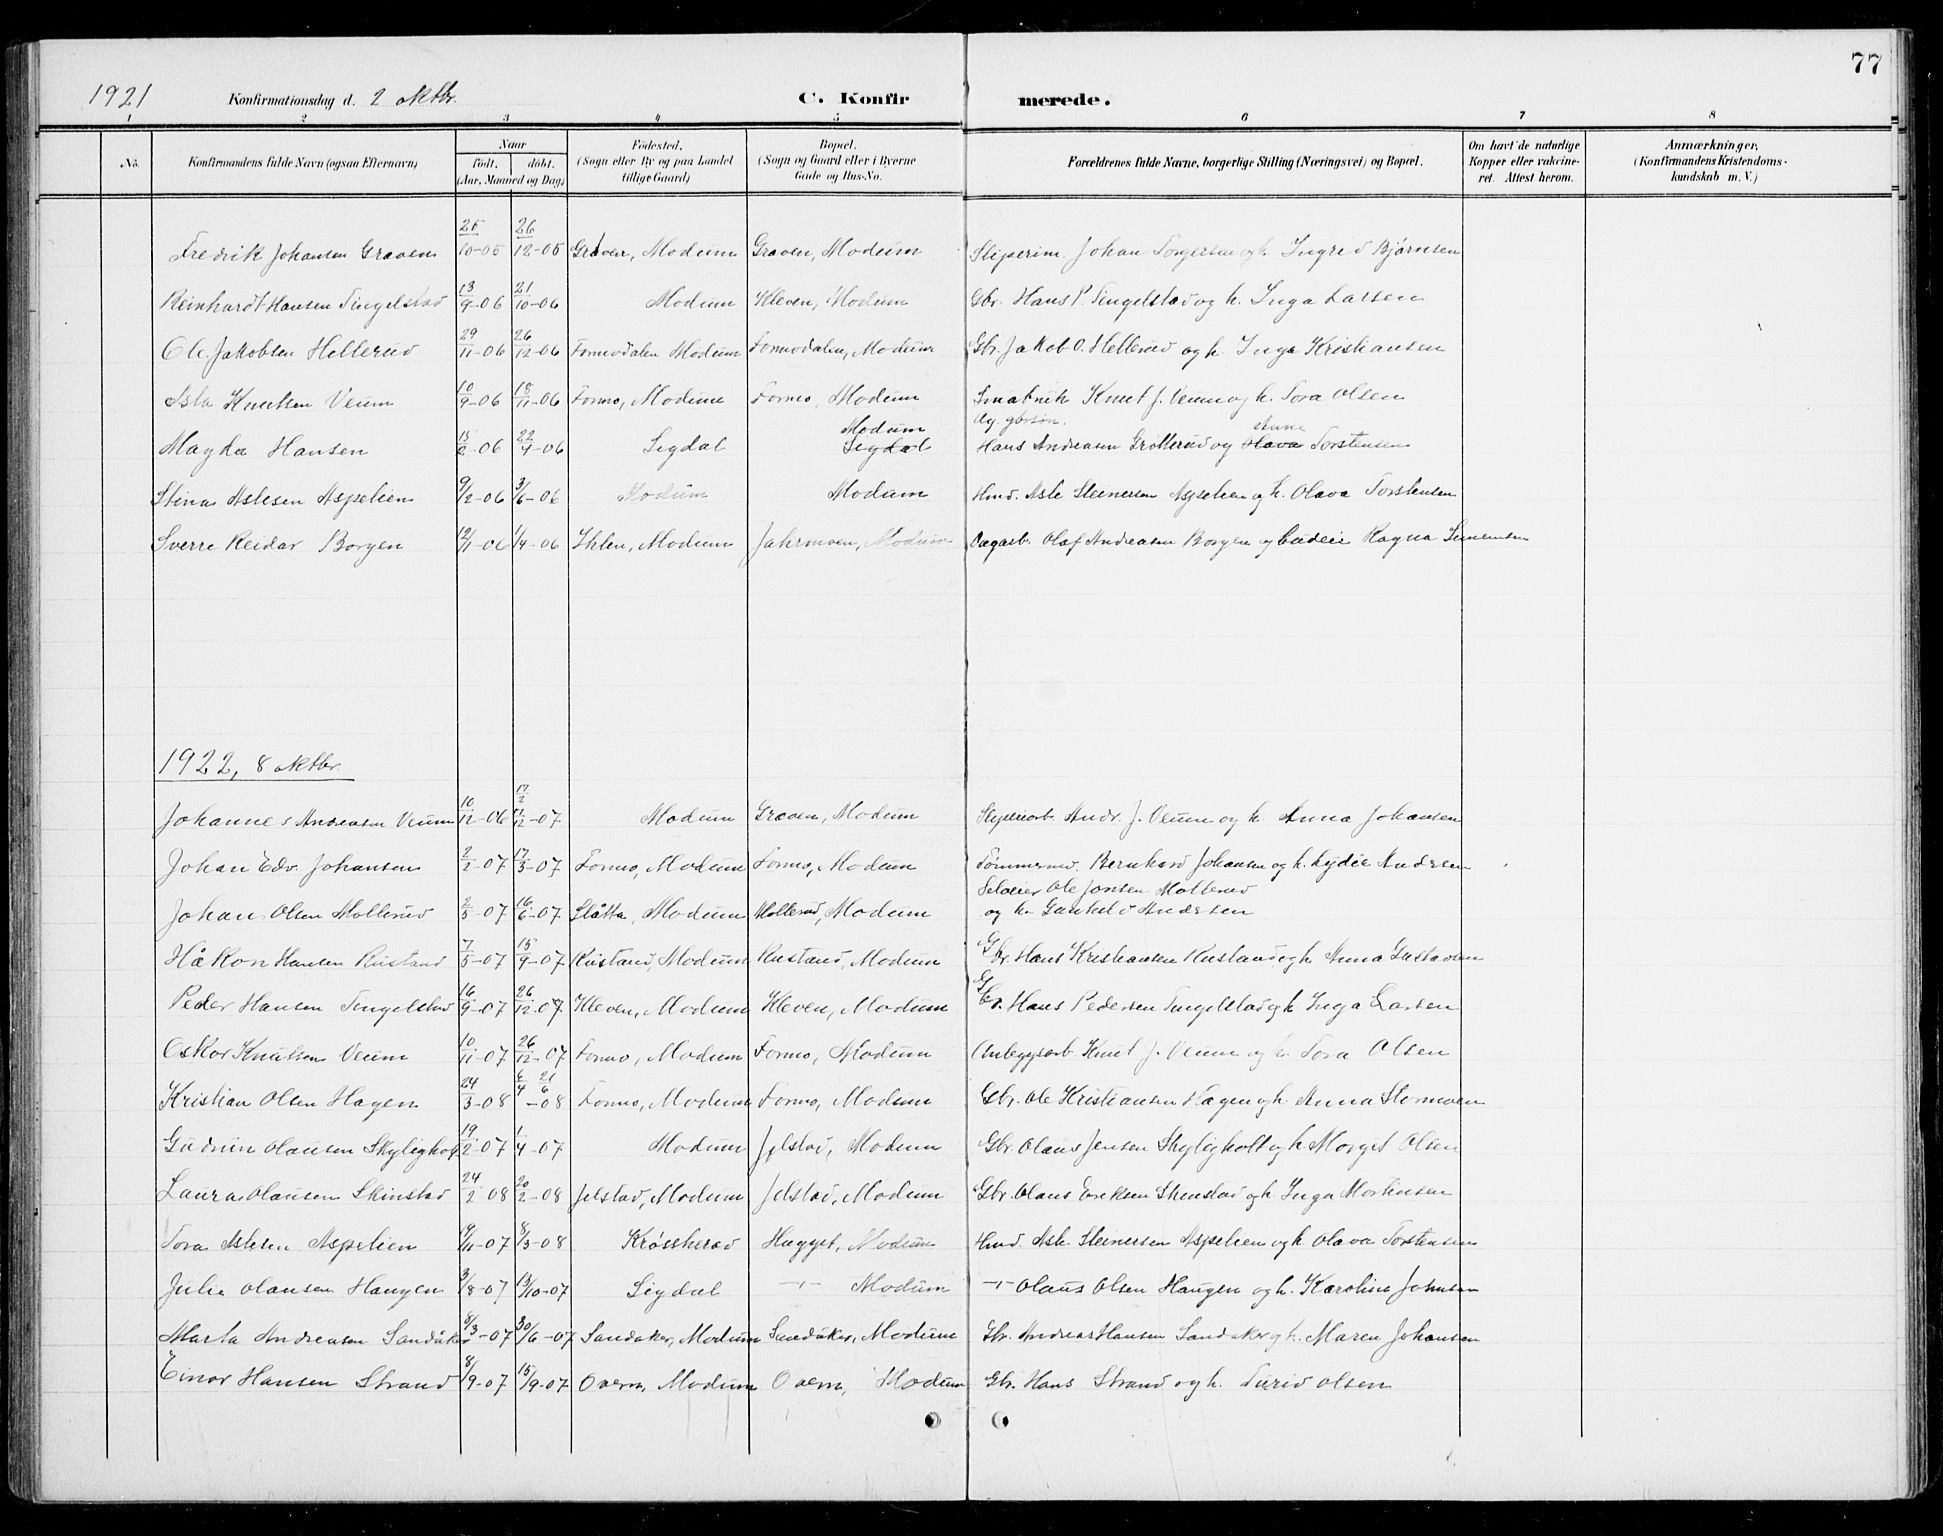 77
1921 Konfirmationsdag d. 2 oktbr. C. Konfirmerede.
1 2 3 4 5 6 7 8
No. Konfirmandens fulde Navn (ogsaa Efternavn) Naar födt, döbt. (Aar, Maaned og Dag) Födested. (Sogn eller By og paa Landet tillige Gaard) Bopæl. (Sogn og Gaard eller i Byerne Gade og Hus-No. Forældrenes fulde Navne, borgerlige Stilling (Næringsvei) og Bopæl. Om havt de naturlige Kopper eller vakcineret. Attest herom. Anmærkninger, (Konfirmandens Kristendomskundskab m. V.)
Fredrik Johansen Graven 25/10-05 26/12-05 Graven, Modum Graven, Modum Sliperim. Johan Torgersen og h. Ingrid Bjørnsen
Reinhardt Hansen Tingelstad 13/9-06 21/10-06 Modum Kleven, Modum Gbr. Hans P. Tingelstad og h. Inga Larsen
Ole Jakobsen Hellerud 29/11-06 26/12-06 Formodalen Modum Formodalen, Modum Gbr. Jakob O. Hellerud og h. Inga Kristiansen
Asta Knutsen Veum 10/9-06 18/11-06 Formo, Modum Formo, Modum Knut J. Veum og h. Tora Olsen
Ug. gbrsøn. Anne
Magda Hansen 15/2-06 22/4-06 Sigdal Modum Sigdal Hans Andreasen Grøtterud og Olava Torstensen
Stina Aslesen Aspelien 9/2-06 3/6-06 Modum Modum Hmd. Asle Steinersen Aspelien og h. Olava Torstensen
Sverre Reidar Borgen 12/1-06 1/4-06 Ihlen, Modum Jahrmoen, Modum Dagarb. Olaf Andreasen Borgen og Ragna Simensen
1922, 8 oktbr.
Johannes Andreasen Veum 10/12-06 17/2 17/12-07 Modum Graven, Modum Sliperiarb. Andr. J. Veum og h. Anna Johansen
Johan Edv. Johansen 2/2-07 17/3-07 Formo, Modum Formo, Modum Tømmermd. Bernhard Johansen og h. Lydie Andersen
Selveier Ole Jonsen Mollerud
Johan Olsen Mollerud 2/5-07 16/6-07 Slåtta, Modum Mollerud, Modum og h. Gunhild Andersen
Håkon Hansen Rustand 7/5-07 15/9-07 Rustand, Modum Rustand, Modum Gbr. Hans Kristiansen Rustand og h. Anna Gustavsen
Peder Hansen Tingelstad 16/9-07 26/12-07 Kleven, Modum Kleven, Modum Gbr. Hans Pedersen Tingelstad og h. Inga Larsen
Oskar Knutsen Veum 10/11-07 26/12-07 Formo, Modum Formo, Modum Anlegsarb. Knut J. Veum og h. Tora Olsen
Kristian Olsen Hagen 24/3-08 6/4 21/6-08 Formo, Modum Formo, Modum Gbr. Ole Kristiansen Hagen og h. Anna Stormoen
Gudrun Olausen Skylighol 19/2-07 1/4-07 Modum Jelstad, Modum Gbr. Olaus Jensen Skyligholt og h. Marget Olsen
Laura Olausen Skinstad 24/2 08 20/2-08 Jelstad, Modum Jelstad, Modum Gbr. Olaus Eriksen Skinstad og h. Inga Markusen
Tora Aslesen Aspelien 19/11-07 8/3-08 Krøsherad Hagget, Modum Hmd. Asle Steinersen Aspelien og h. Olava Torstensen
Julie Olausen Haugen 3/8-07 13/10-07 Sigdal -"- Modum -"- Olaus Olsen Haugen og h. Karoline Johnsen
Marta Andreasen Sandåker 8/3-07 30/6-07 Sandaker, Modum Sandåker, Modum Gbr. Andreas Hansen Sandaker og h. Maren Johansen
Einar Hansen Strand 8/9-07 15/9-07 Overn, Modum Overn, Modum Gbr. Hans Strand og h. Turid Olsen